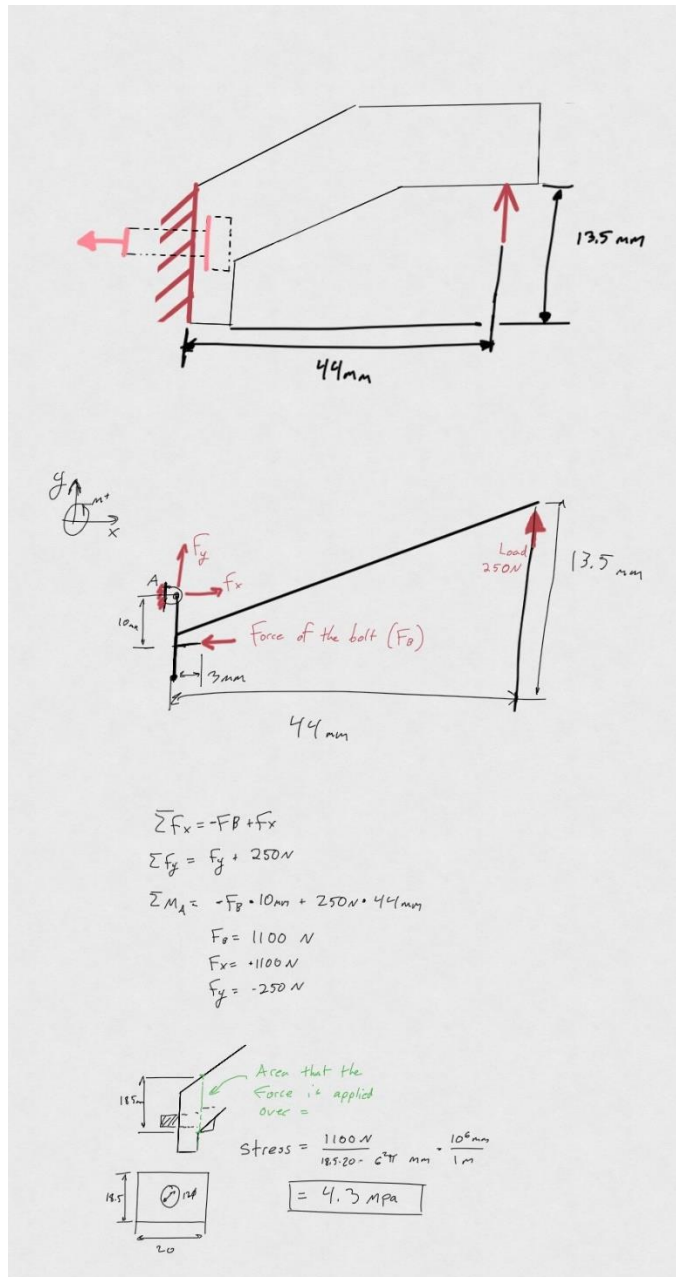 13.5 mm
44mm
y
M+
x
Fy
A
fx
Load
250N
13.5 mm
10mm
Force of the bolt (FB)
3mm
44mm
ΣFx = -FB + Fx
Σfy = fy + 250N
ΣMA = -FB • 10mm + 250N • 44mm
FB = 1100 N
Fx = +1100 N
Fy = -250 N
Area that the
Force is applied
over =
Stress = 1100 N / 18.5·20 - 6²π mm · 10⁶mm / 1m
18.5
= 4.3 mpa
20